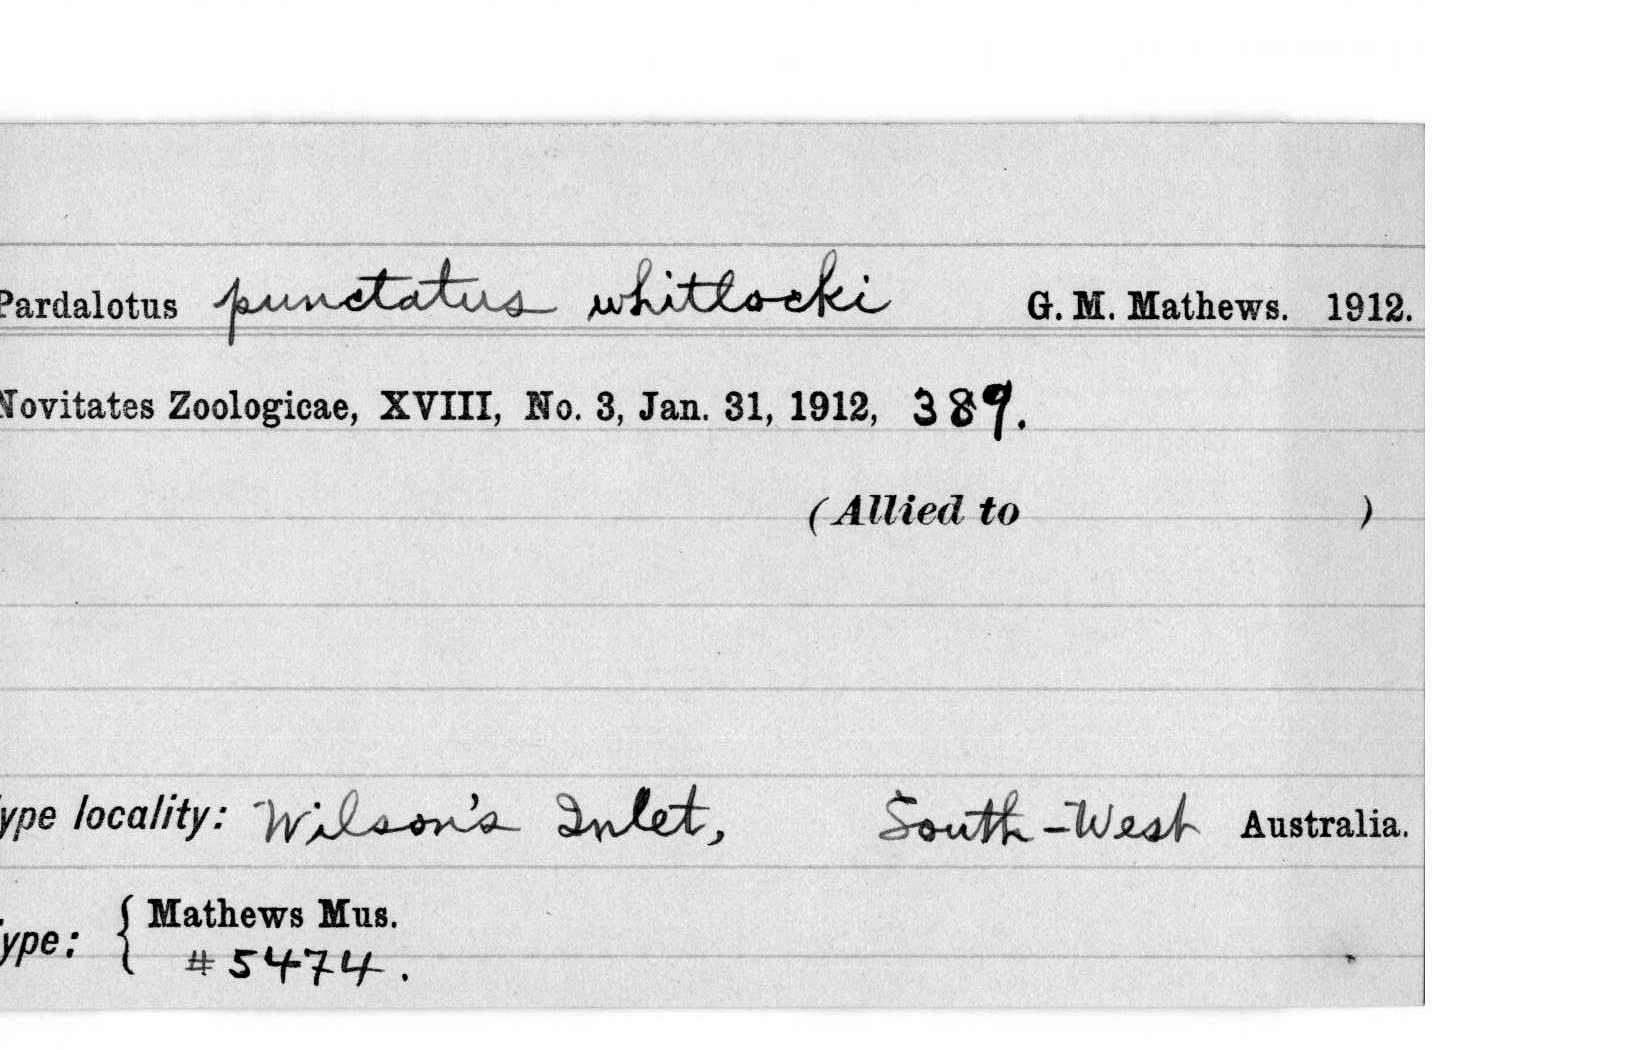 Pardalotus punctatus whitlocki G. M. Mathews. 1912.
Novitates Zoologicae, XVIII, No. 3, Jan. 31, 1912, 389.
(Allied to )
ype locality: Wilson's Inlet, South-West Australia.
ype: { Mathews Mus.
#5474.